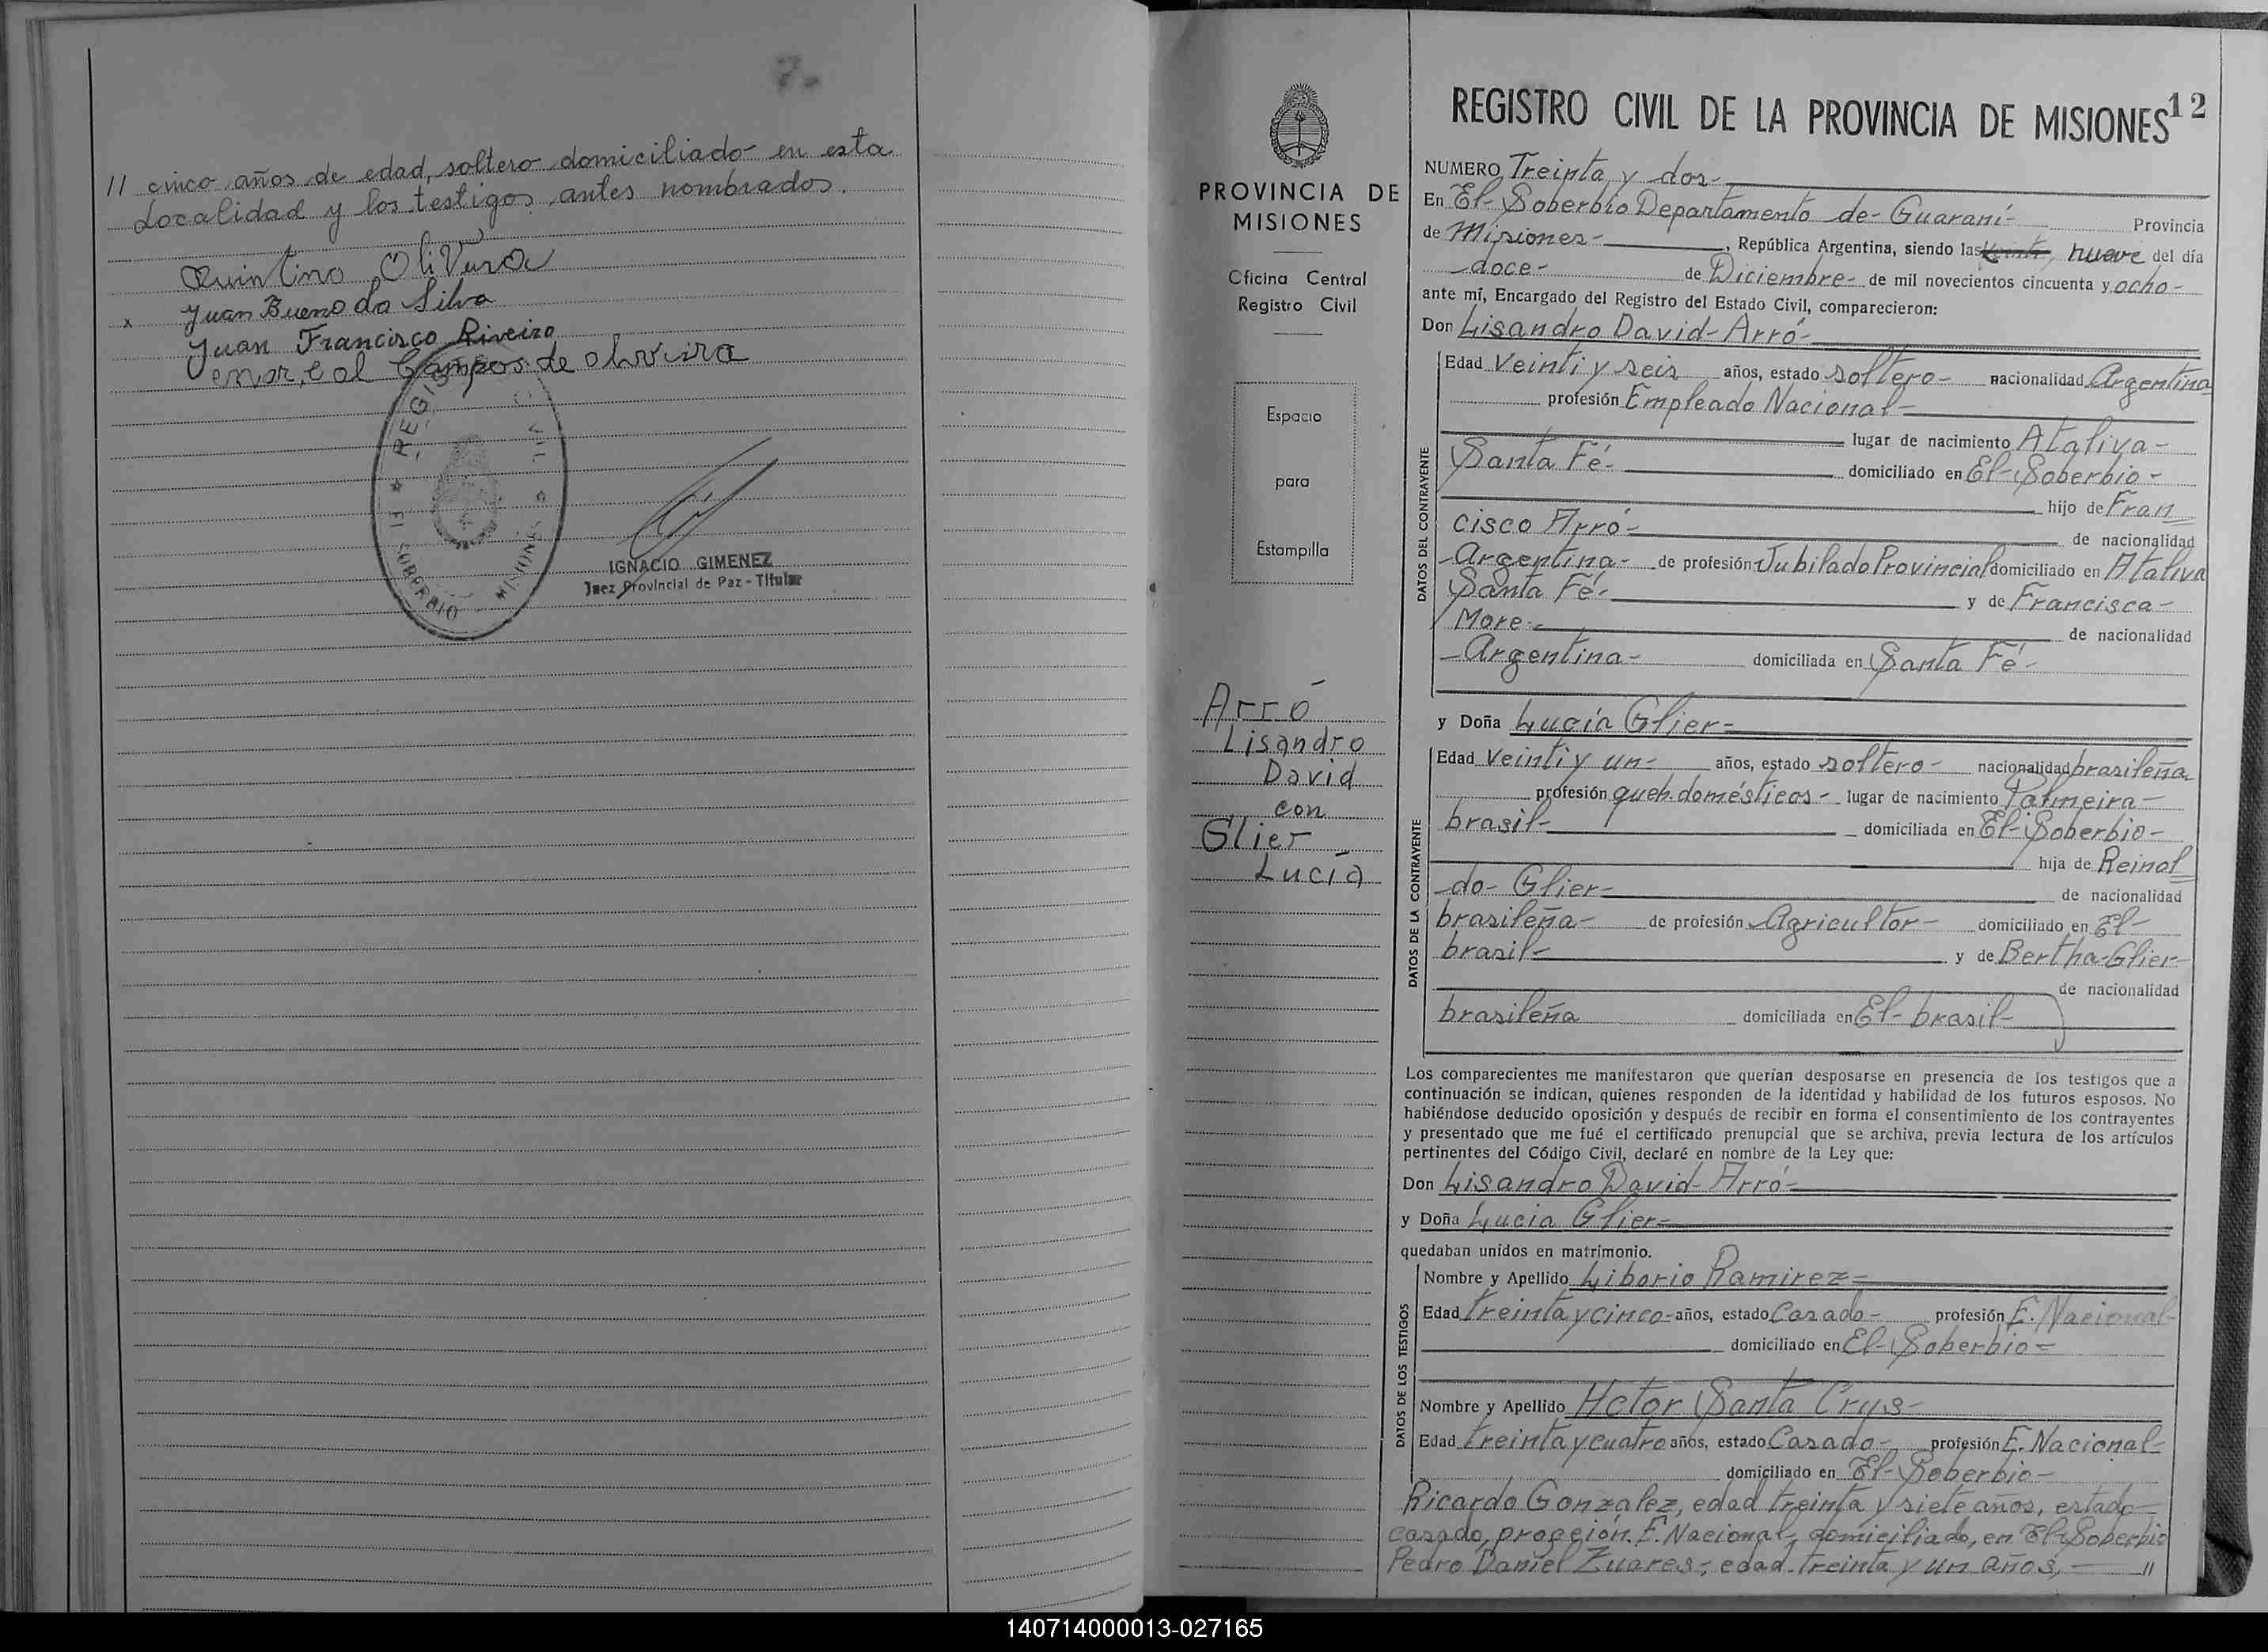 7.
// cinco años de edad, soltero domiciliado en esta
Localidad y los testigos antes nombrados.
Quintino Olivera
x Juan Bueno da Silva
Juan Francisco Riveiro
Campos de oliveira
★ REGISTRO CIVIL
EL SOBERBIO ★ MISIONES
IGNACIO GIMENEZ
Juez Provincial de Paz - Titular
PROVINCIA DE
MISIONES
Oficina Central
Registro Civil
Espacio
para
Estampilla
Arró
Lisandro
David
con
Glier
Lucía
REGISTRO CIVIL DE LA PROVINCIA DE MISIONES 12
NUMERO Treinta y dos-
En El-Soberbio Departamento de-Guaraní- Provincia
de Misiones-, República Argentina, siendo las nueve del día
doce- de Diciembre- de mil novecientos cincuenta y ocho-
ante mí, Encargado del Registro del Estado Civil, comparecieron:
Don Lisandro David-Arró-
DATOS DEL CONTRAYENTE
Edad Veinti y seis años, estado soltero- nacionalidad Argentina
profesión Empleado Nacional-
lugar de nacimiento Ataliva-
Santa Fé- domiciliado en El-Soberbio-
hijo de Fran
cisco Arró- de nacionalidad
-Argentina- de profesión Jubilado Provincial domiciliado en Ataliva
Santa Fé- y de Francisca-
More- de nacionalidad
-Argentina- domiciliada en Santa Fé-
y Doña Lucía Glier-
DATOS DE LA CONTRAYENTE
Edad Veinti y un- años, estado soltero- nacionalidad brasileña
profesión queh. domésticos- lugar de nacimiento Palmeira-
brasil- domiciliada en El-Soberbio-
hija de Reinal
-do- Glier- de nacionalidad
brasileña- de profesión Agricultor- domiciliado en El-
brasil- y de Bertha-Glier-
de nacionalidad
brasileña domiciliada en El-brasil-
Los comparecientes me manifestaron que querían desposarse en presencia de los testigos que a
continuación se indican, quienes responden de la identidad y habilidad de los futuros esposos. No
habiéndose deducido oposición y después de recibir en forma el consentimiento de los contrayentes
y presentado que me fué el certificado prenupcial que se archiva, previa lectura de los artículos
pertinentes del Código Civil, declaré en nombre de la Ley que:
Don Lisandro David-Arró-
y Doña Lucia Glier-
quedaban unidos en matrimonio.
DATOS DE LOS TESTIGOS
Nombre y Apellido Liborio Ramirez-
Edad treinta y cinco- años, estado Casado- profesión E. Nacional-
domiciliado en El-Soberbio-
Nombre y Apellido Hctor Santa Crus-
Edad treinta y cuatro años, estado Casado- profesión E. Nacional-
domiciliado en El-Soberbio-
Ricardo Gonzalez, edad treinta y siete años, estado-
casado, profeción. E. Nacional, domiciliado, en El-Soberbio
Pedro Daniel Zuares-, edad treinta y un años,- //
140714000013-027165